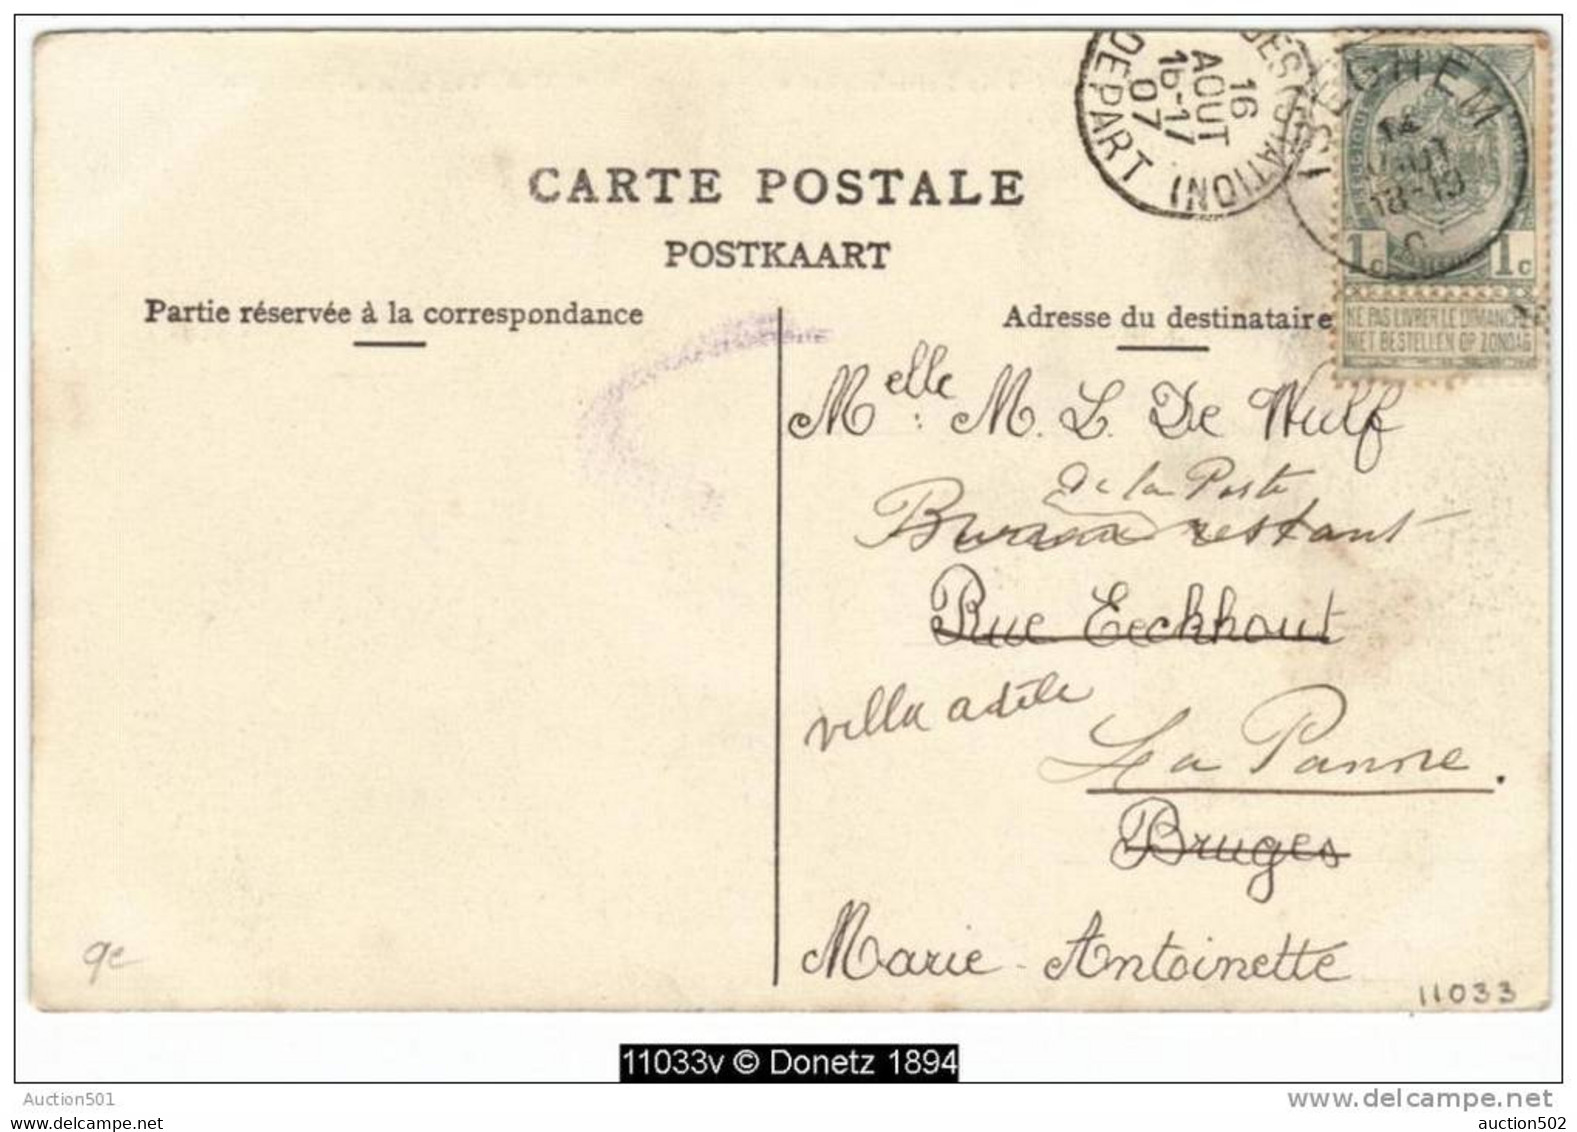 16
AOUT
16-17
07
(STATION)
DEPART
GHEM
18-19
CARTE POSTALE
POSTKAART
1c 1c
NE PAS LIVRER LE DIMANCHE
NIET BESTELLEN OP ZONDAG
Partie réservée à la correspondance
Adresse du destinataire
Melle: M. L. De Wulf
de la Poste
Bureau restant
Rue Eeckhout
villa adèle
La Panne.
Bruges
Marie-Antoinette
9e
11033
11033v © Donetz 1894
Auction501
www.delcampe.net
auction502.be
auction502